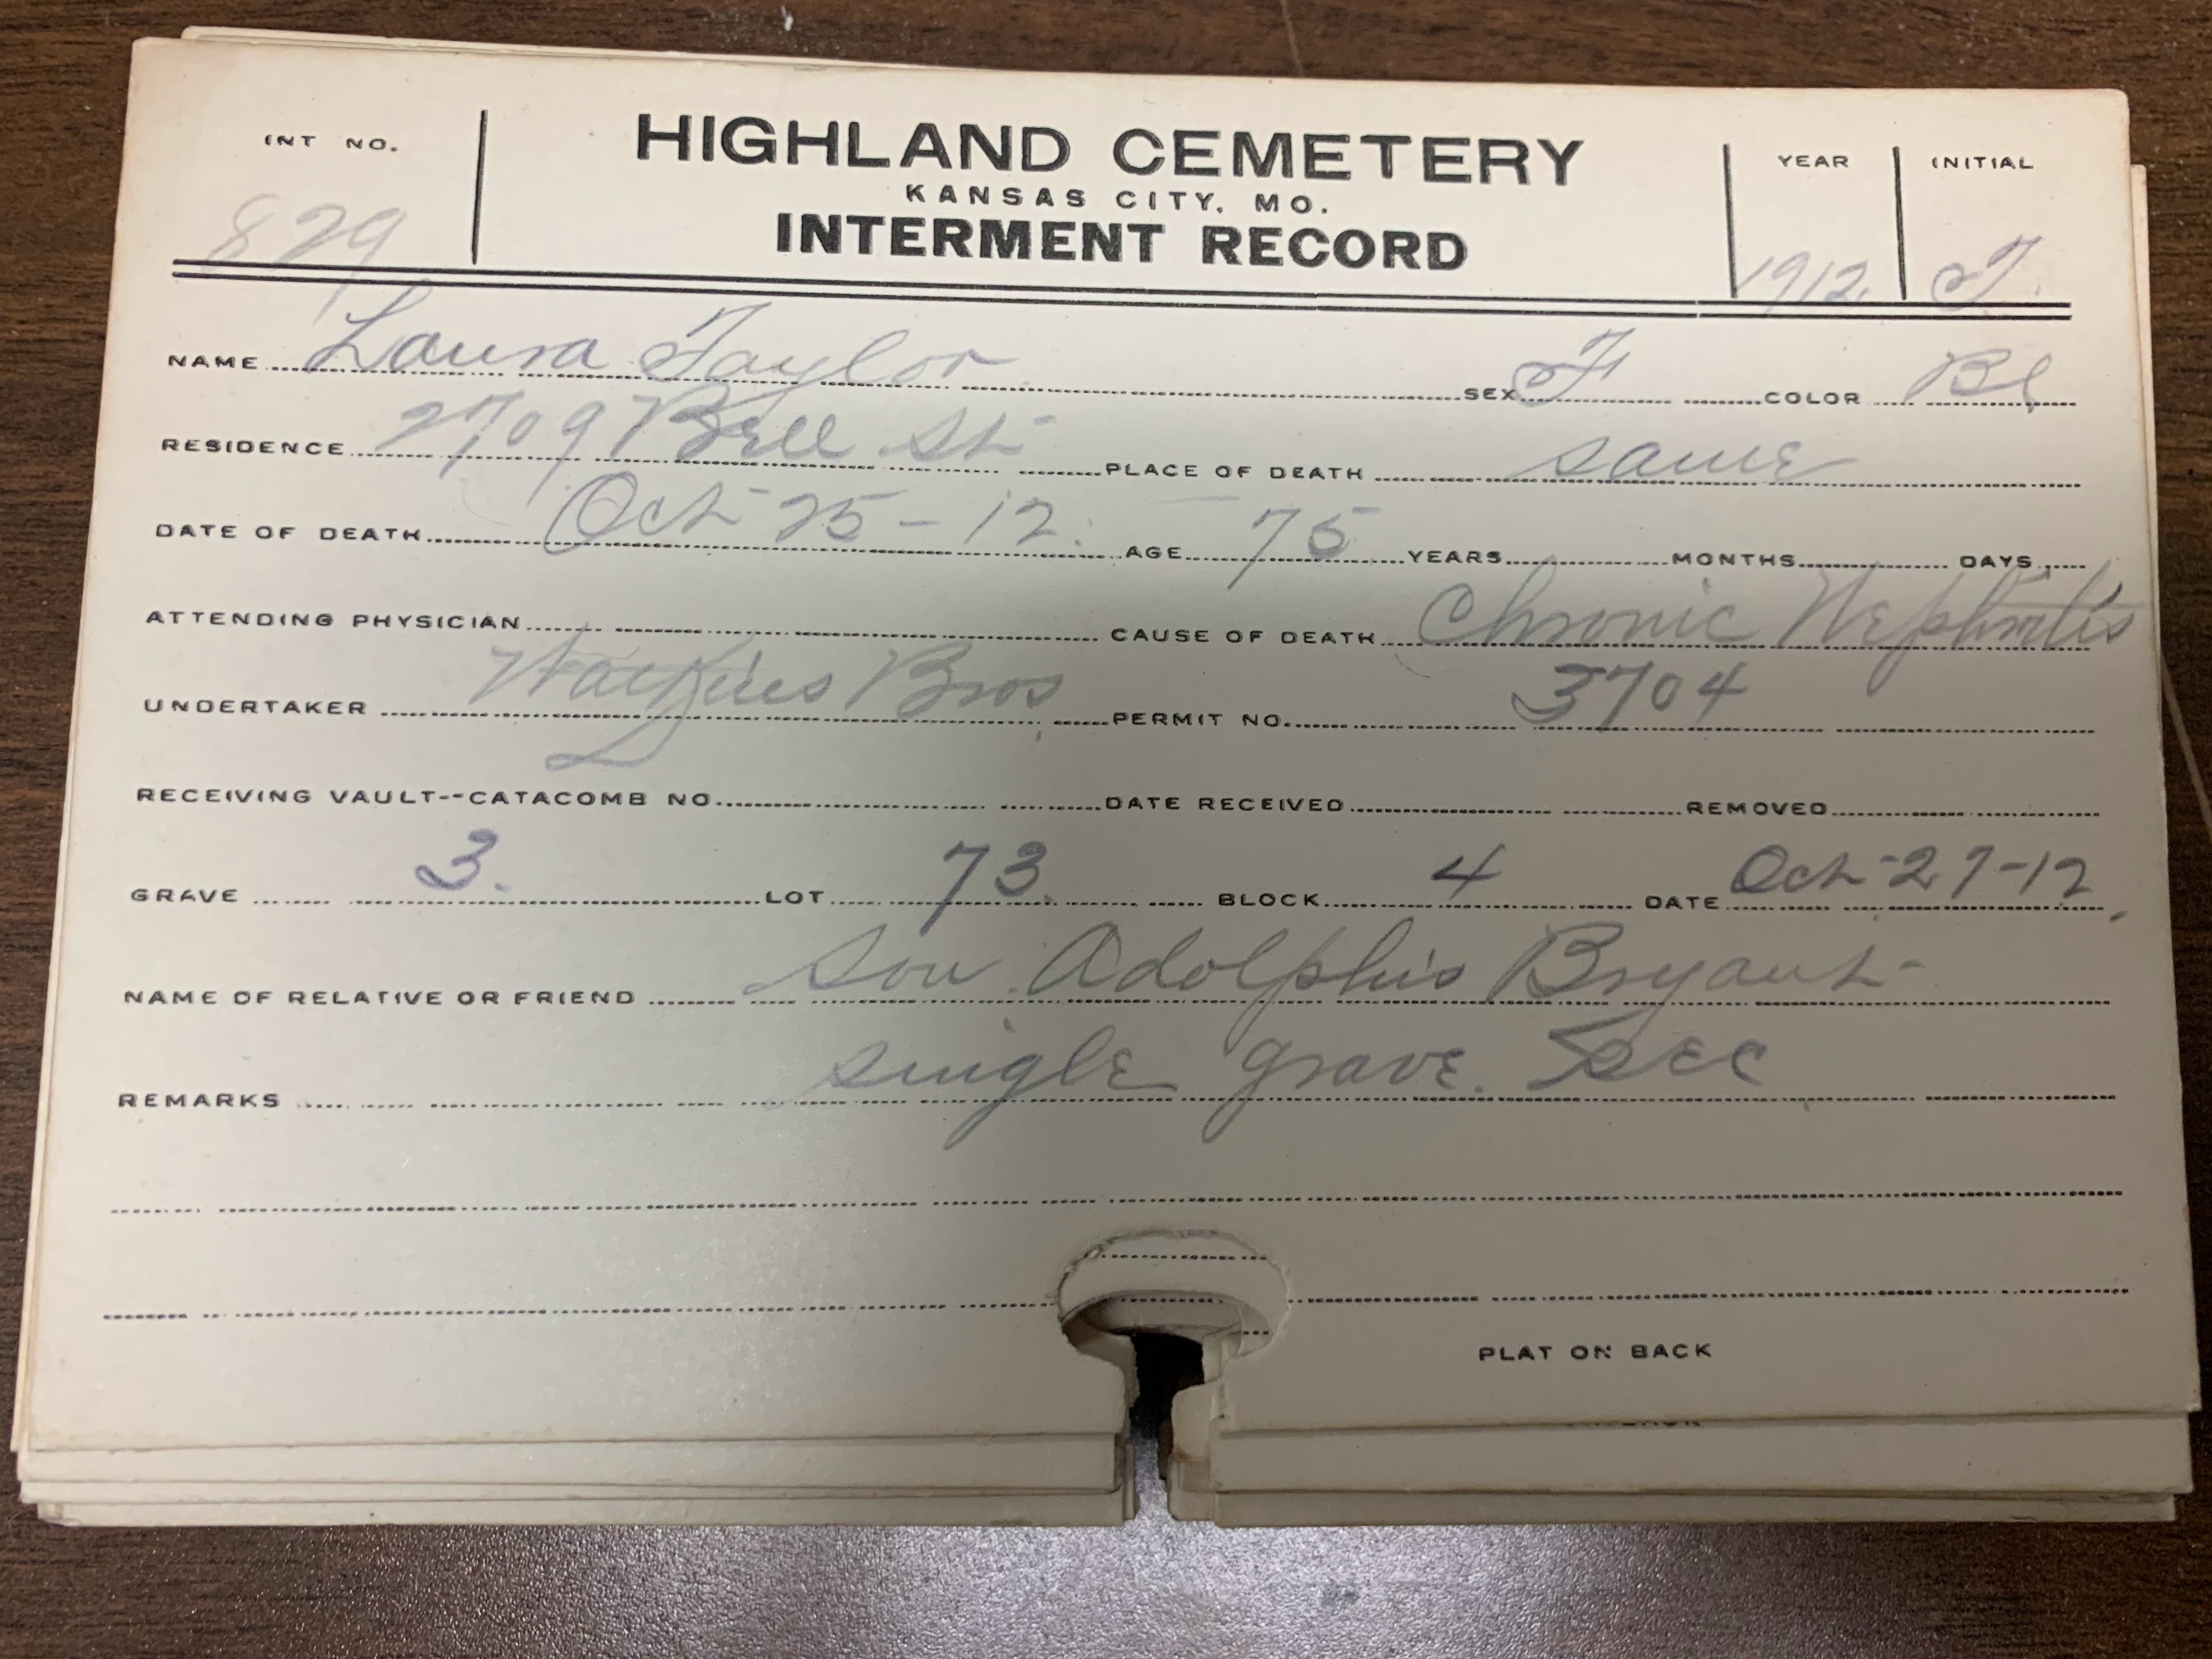 INT NO. HIGHLAND CEMETERY YEAR INITIAL
KANSAS CITY, MO.
829 INTERMENT RECORD 1912 T.
NAME Laura Taylor SEX F COLOR Bl
RESIDENCE 2709 Bell St PLACE OF DEATH same
DATE OF DEATH Oct 25-12. AGE 75 YEARS MONTHS DAYS
ATTENDING PHYSICIAN CAUSE OF DEATH Chronic Nephritis
UNDERTAKER Watkins Bros PERMIT NO. 3704
RECEIVING VAULT--CATACOMB NO. DATE RECEIVED REMOVED
GRAVE 3. LOT 73. BLOCK 4 DATE Oct-27-12
NAME OF RELATIVE OR FRIEND son Adolphis Bryant
REMARKS single grave. Sec
PLAT ON BACK